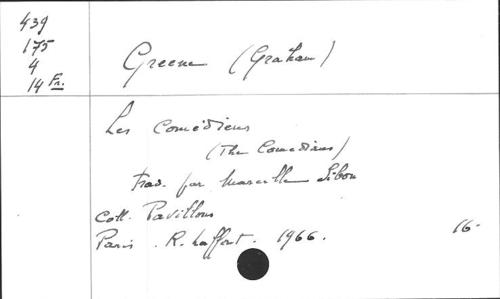 439
175
4
14 Fr.
Greene (Graham)
Les Comédiens
(The Comedians)
Trad. par Marcelle Sibon
Coll. Pavillons
Paris. R. Laffont. 1966.
16-